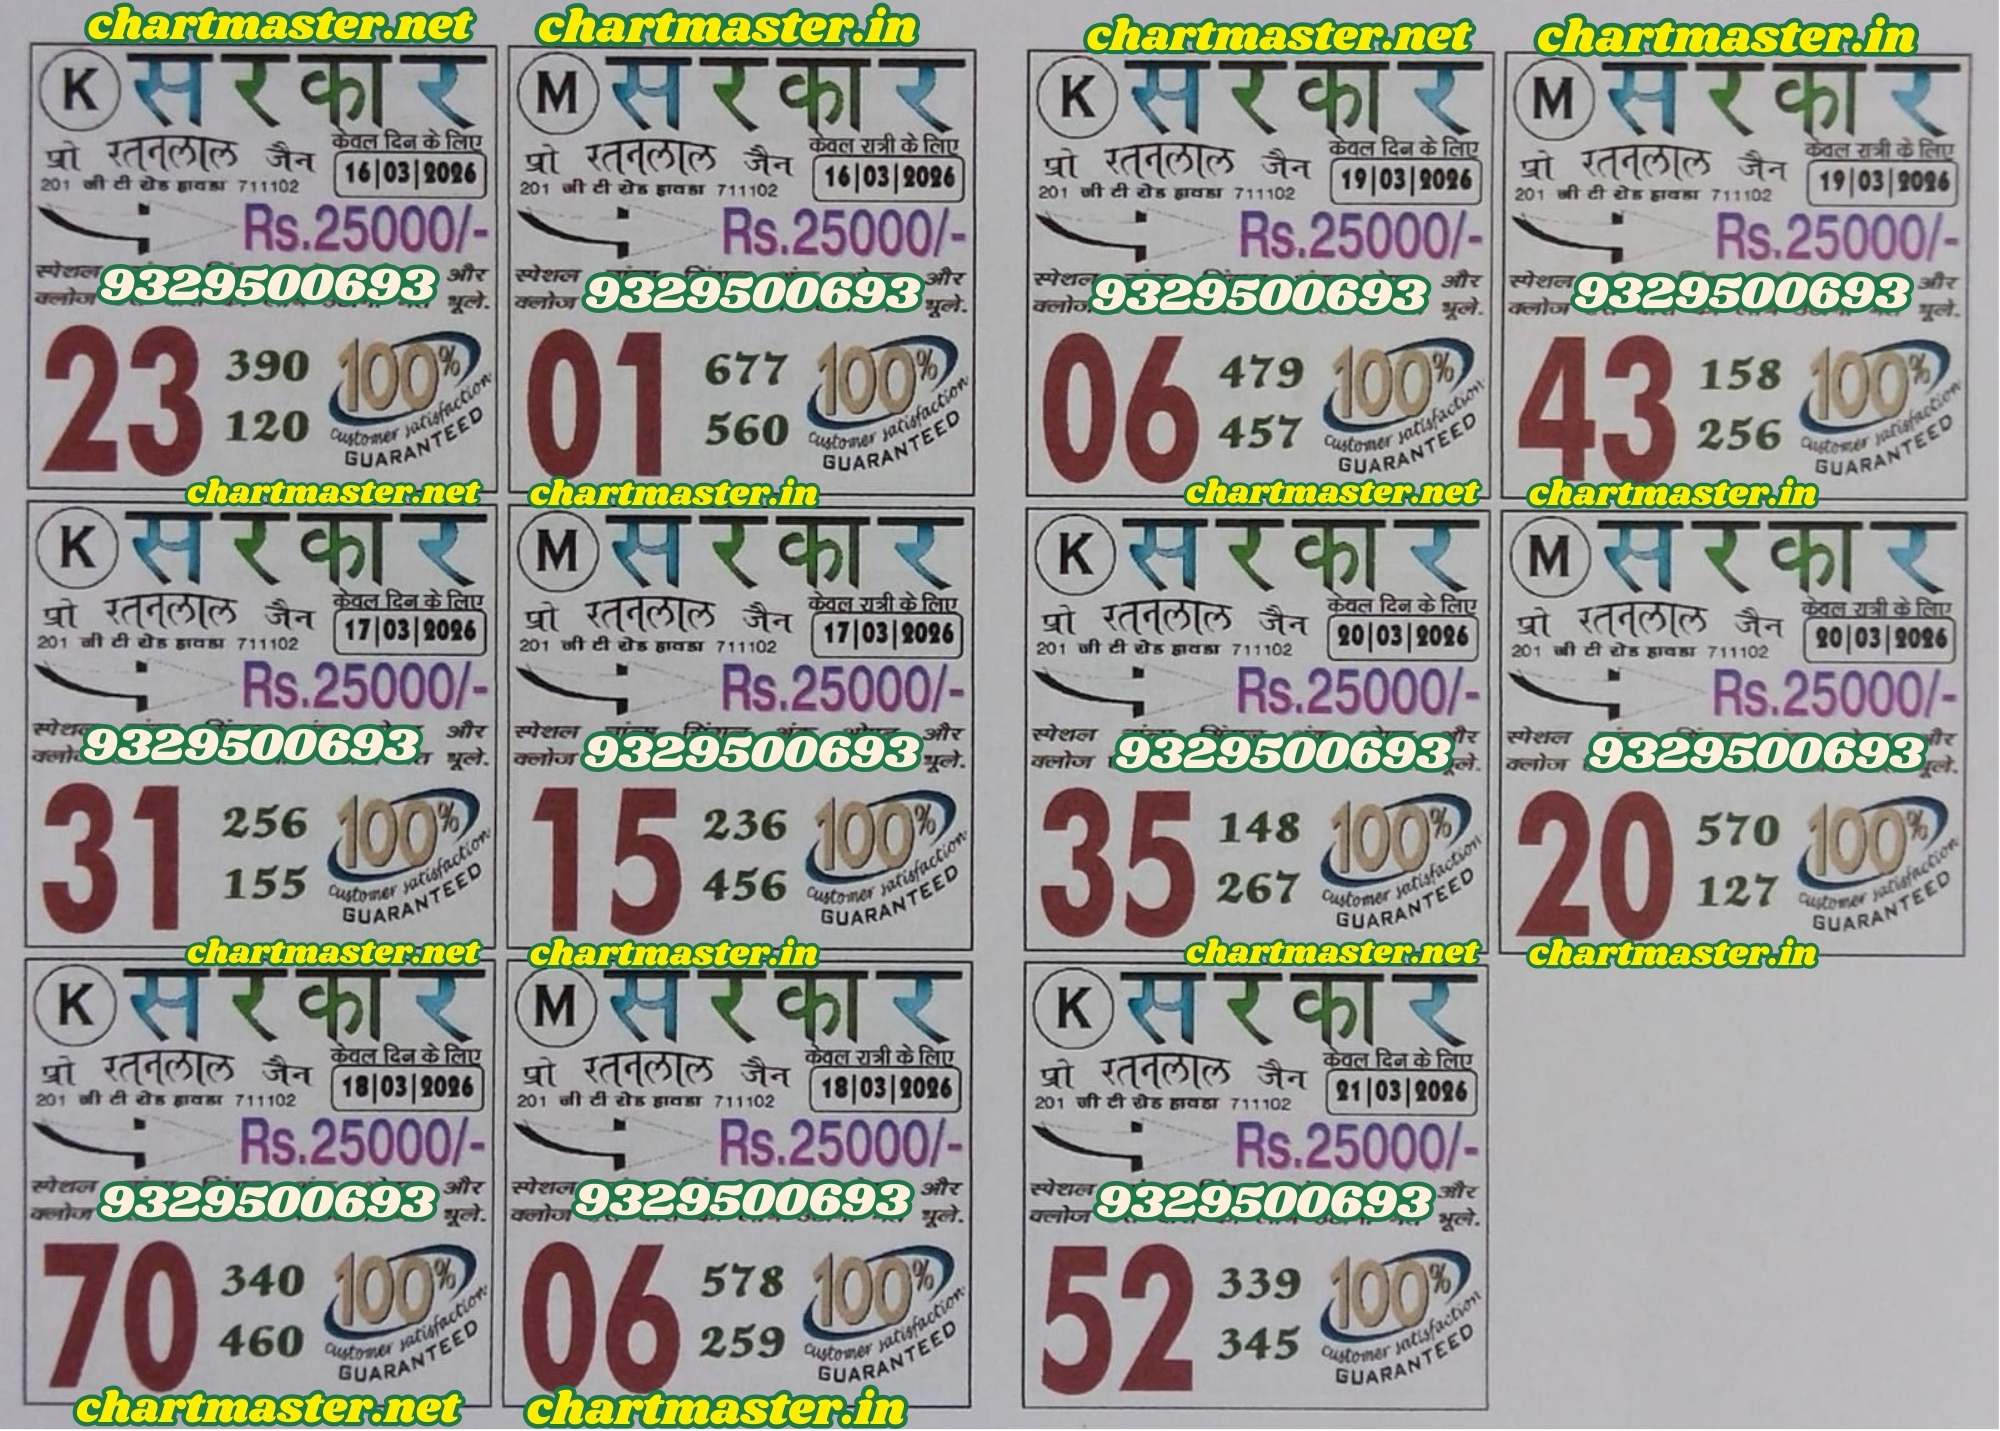 chartmaster.net
K सरकार
प्रो रतनलाल जैन
केवल दिन के लिए
16|03|2026
201 जी टी रोड हावडा 711102
Rs.25000/-
स्पेशल और
9329500693
क्लोज भूले.
23
390
120
100%
customer satisfaction
GUARANTEED
chartmaster.net
chartmaster.in
M सरकार
प्रो रतनलाल जैन
केवल रात्री के लिए
16|03|2026
201 जी टी रोड हावडा 711102
Rs.25000/-
स्पेशल और
9329500693
क्लोज भूले.
01
677
560
100%
customer satisfaction
GUARANTEED
chartmaster.in
chartmaster.net
K सरकार
प्रो रतनलाल जैन
केवल दिन के लिए
19|03|2026
201 जी टी रोड हावडा 711102
Rs.25000/-
स्पेशल और
9329500693
क्लोज भूले.
06
479
457
100%
customer satisfaction
GUARANTEED
chartmaster.net
chartmaster.in
M सरकार
प्रो रतनलाल जैन
केवल रात्री के लिए
19|03|2026
201 जी टी रोड हावडा 711102
Rs.25000/-
स्पेशल और
9329500693
क्लोज भूले.
43
158
256
100%
customer satisfaction
GUARANTEED
chartmaster.in
K सरकार
प्रो रतनलाल जैन
केवल दिन के लिए
17|03|2026
201 जी टी रोड हावडा 711102
Rs.25000/-
और
9329500693
भूले.
31
256
155
100%
customer satisfaction
GUARANTEED
chartmaster.net
M सरकार
प्रो रतनलाल जैन
केवल रात्री के लिए
17|03|2026
201 जी टी रोड हावडा 711102
Rs.25000/-
स्पेशल और
9329500693
क्लोज भूले.
15
236
456
100%
customer satisfaction
GUARANTEED
chartmaster.in
K सरकार
प्रो रतनलाल जैन
केवल दिन के लिए
20|03|2026
201 जी टी रोड हावडा 711102
Rs.25000/-
स्पेशल
9329500693
क्लोज
35
148
267
100%
customer satisfaction
GUARANTEED
chartmaster.net
M सरकार
प्रो रतनलाल जैन
केवल रात्री के लिए
20|03|2026
201 जी टी रोड हावडा 711102
Rs.25000/-
स्पेशल
9329500693
क्लोज
20
570
127
100%
customer satisfaction
GUARANTEED
chartmaster.in
K सरकार
प्रो रतनलाल जैन
केवल दिन के लिए
18|03|2026
201 जी टी रोड हावडा 711102
Rs.25000/-
स्पेशल और
9329500693
क्लोज भूले.
70
340
460
100%
customer satisfaction
GUARANTEED
chartmaster.net
M सरकार
प्रो रतनलाल जैन
केवल रात्री के लिए
18|03|2026
201 जी टी रोड हावडा 711102
Rs.25000/-
स्पेशल और
9329500693
क्लोज भूले.
06
578
259
100%
customer satisfaction
GUARANTEED
chartmaster.in
K सरकार
प्रो रतनलाल जैन
केवल दिन के लिए
21|03|2026
201 जी टी रोड हावडा 711102
Rs.25000/-
स्पेशल और
9329500693
क्लोज भूले.
52
339
345
100%
customer satisfaction
GUARANTEED